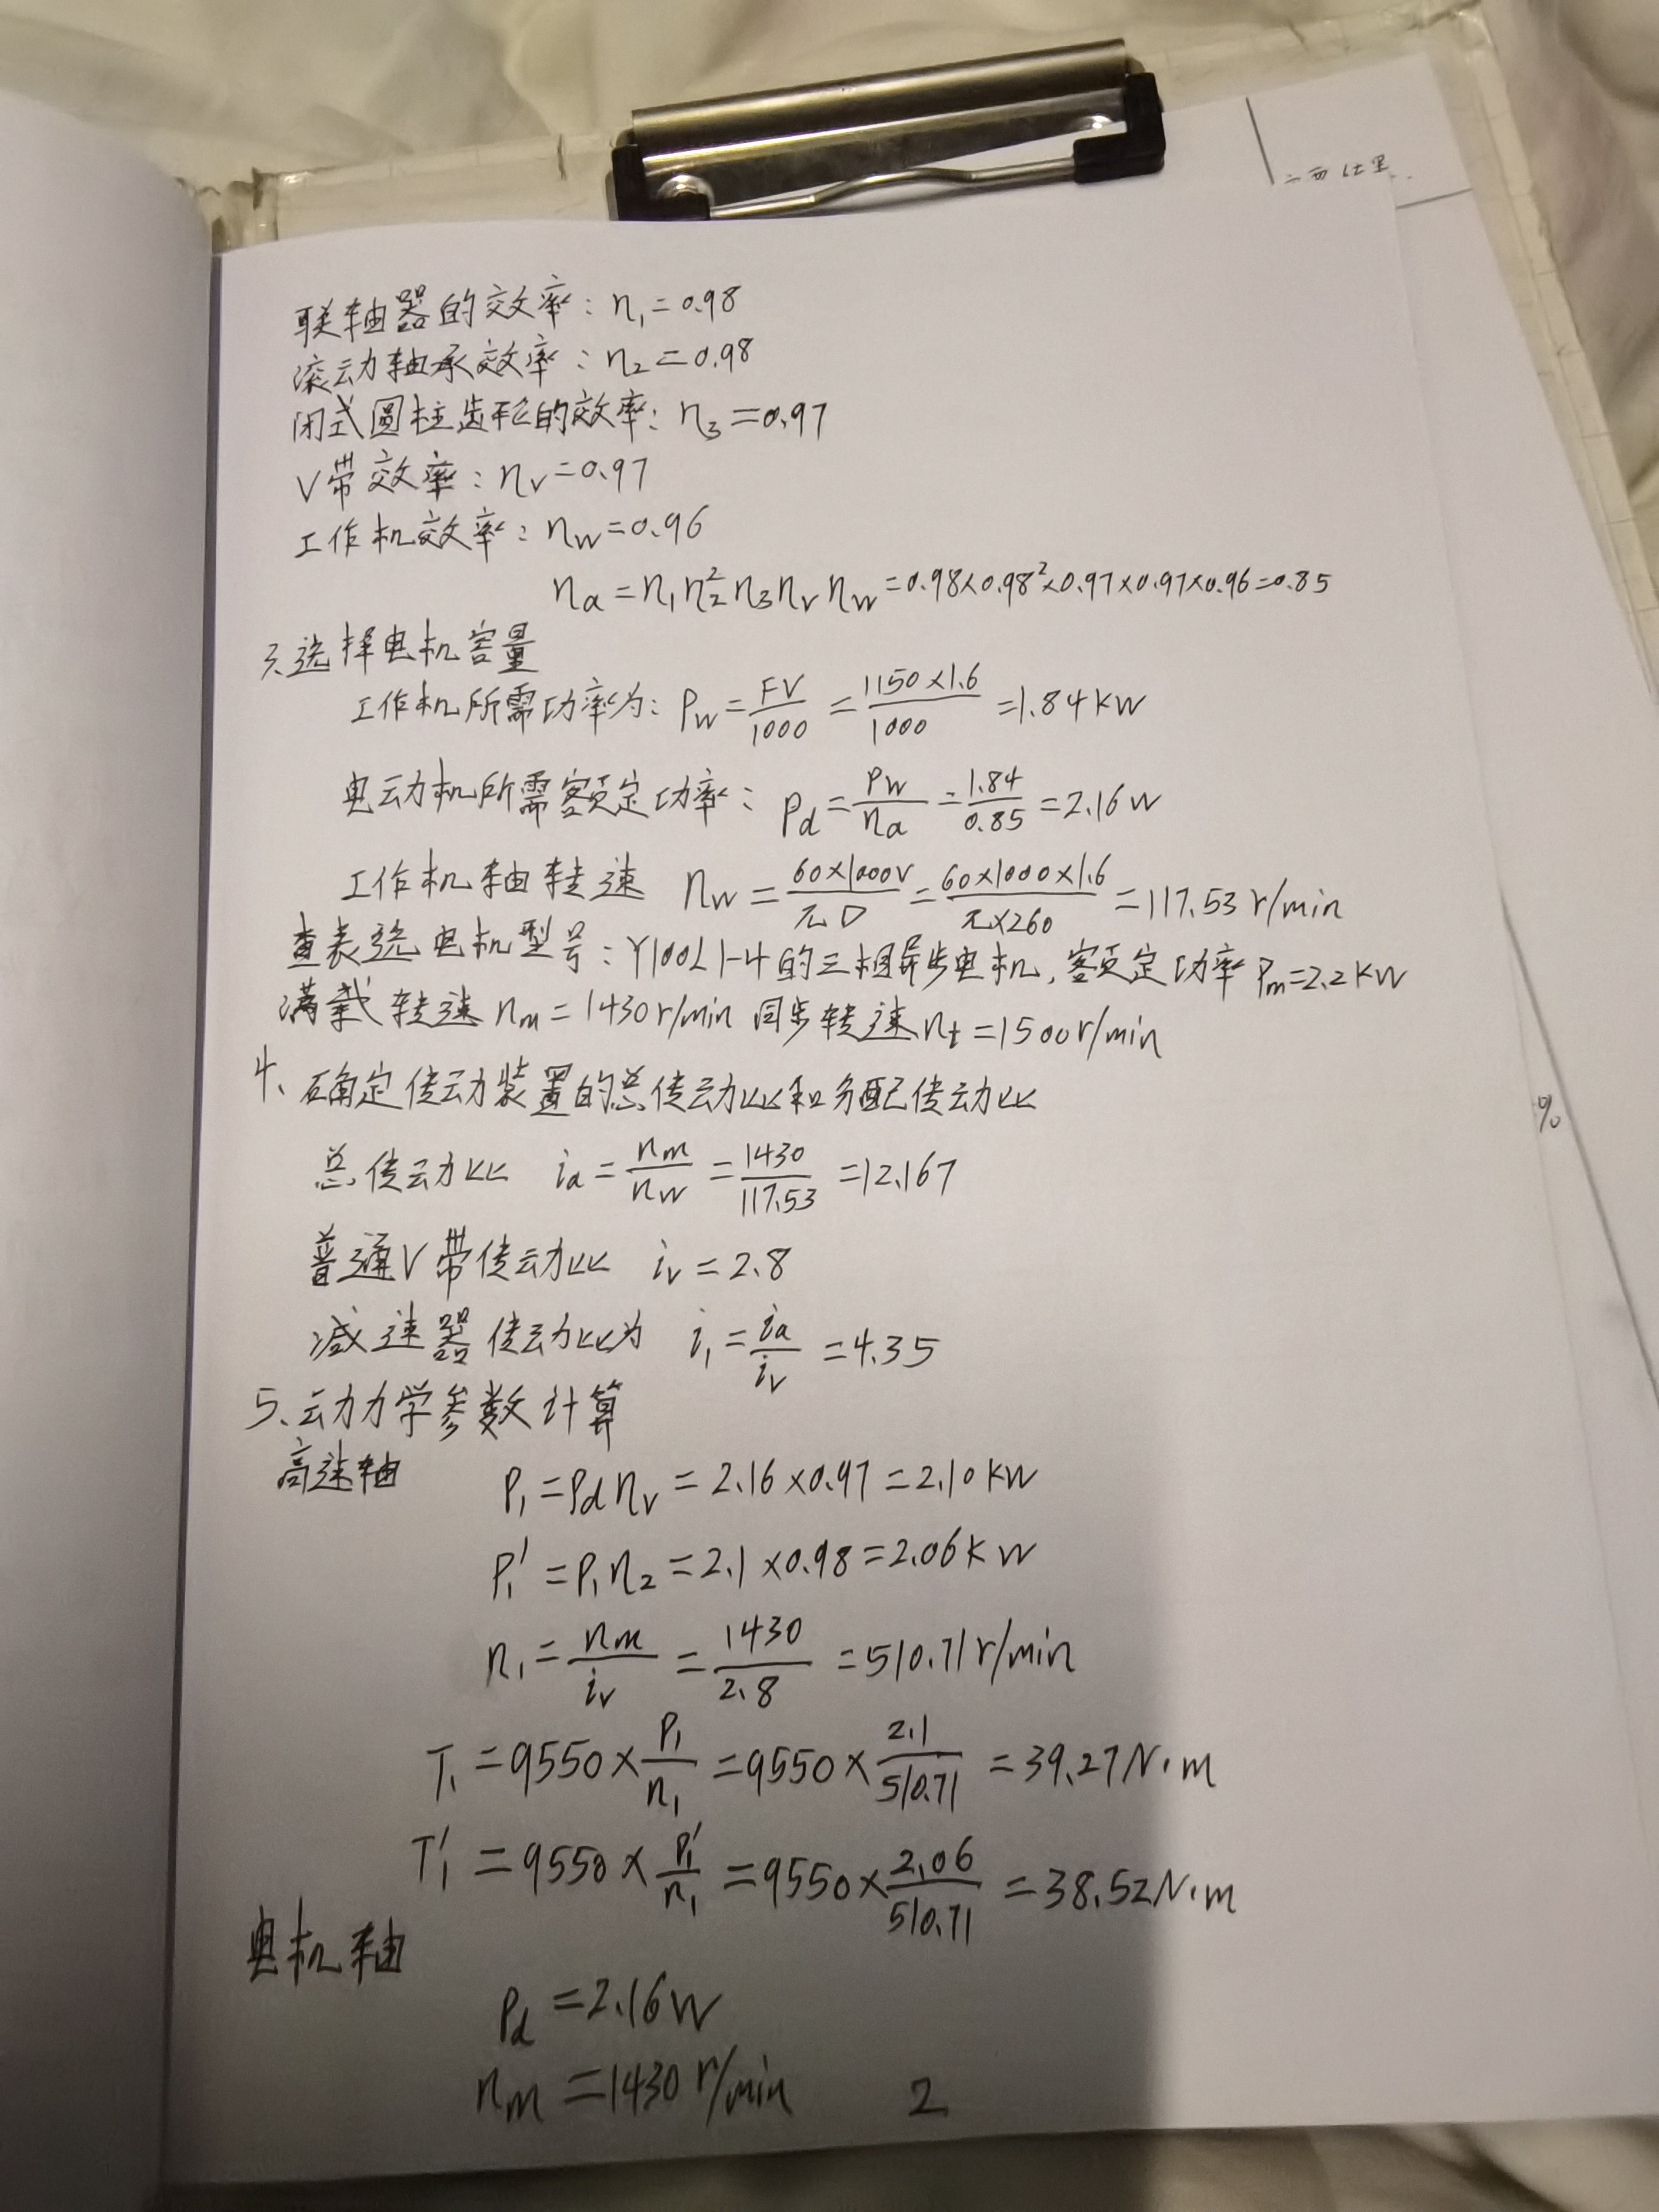 二西仕里..
联轴器的效率: η₁=0.98
滚动轴承效率: η₂=0.98
闭式圆柱齿轮的效率: η₃=0.97
V带效率: ηv=0.97
工作机效率: ηw=0.96
ηa=η₁η₂²η₃ηvηw=0.98×0.98²×0.97×0.97×0.96=0.85
3.选择电机容量
工作机所需功率为: Pw=FV/1000=1150×1.6/1000=1.84KW
电动机所需额定功率: Pd=Pw/ηa=1.84/0.85=2.16W
工作机轴转速 nw=60×1000V/πD=60×1000×1.6/π×260=117.53r/min
查表选电机型号: Y100L1-4的三相异步电机,额定功率Pm=2.2KW
满载转速nm=1430r/min 同步转速nt=1500r/min
4、确定传动装置的总传动比和分配传动比
%
总传动比 ia=nm/nw=1430/117.53=12.167
普通V带传动比 iv=2.8
减速器传动比为 i₁=ia/iv=4.35
5、动力学参数计算
高速轴 P₁=Pdηv=2.16×0.97=2.10KW
P₁'=P₁η₂=2.1×0.98=2.06KW
n₁=nm/iv=1430/2.8=510.71r/min
T₁=9550×P₁/n₁=9550×2.1/510.71=39.27N·m
T₁'=9550×P₁'/n₁=9550×2.06/510.71=38.52N·m
电机轴
Pd=2.16W
nm=1430r/min
2